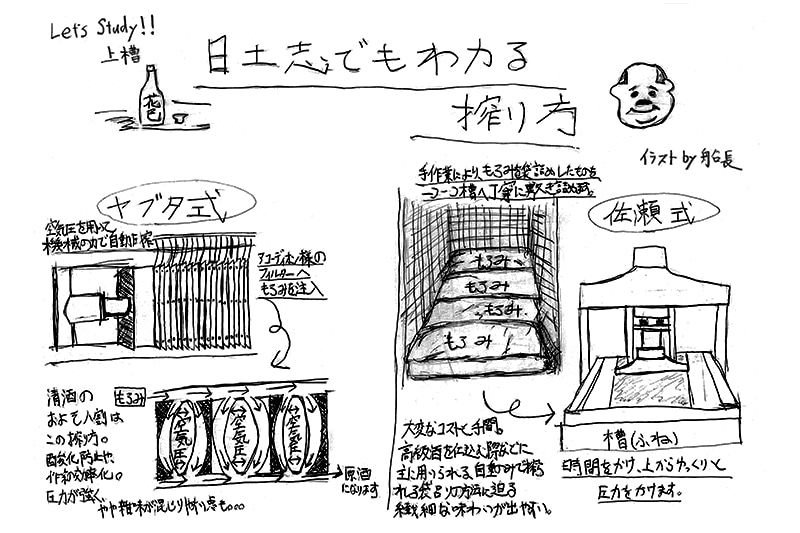 Let's Study!!
上槽
日土志でもわかる
搾り方
花巴
イラスト by 船長
ヤブタ式
空気圧を用いて
機械の力で自動圧搾
アコーディオン様の
フィルターへ
もろみを注入
もろみ
空気圧
空気圧
空気圧
原酒
になります
清酒の
およそ八割は
この搾り方。
酸化防止や、
作業効率化。
圧力が強く
やや雑味が混じりやすい点も。。。
手作業により、もろみを袋詰めしたものを
一つ一つ槽へ丁寧に敷き詰めます。
もろみ
もろみ
もろみ
もろみ
大変なコストと手間。
高級酒を仕込む際などに
主に用いられる、自重のみで搾
られる袋吊りの方法に迫る
繊細な味わいが出やすい。
佐瀬式
槽(ふね)
時間をかけ、上からゆっくりと
圧力をかけます。